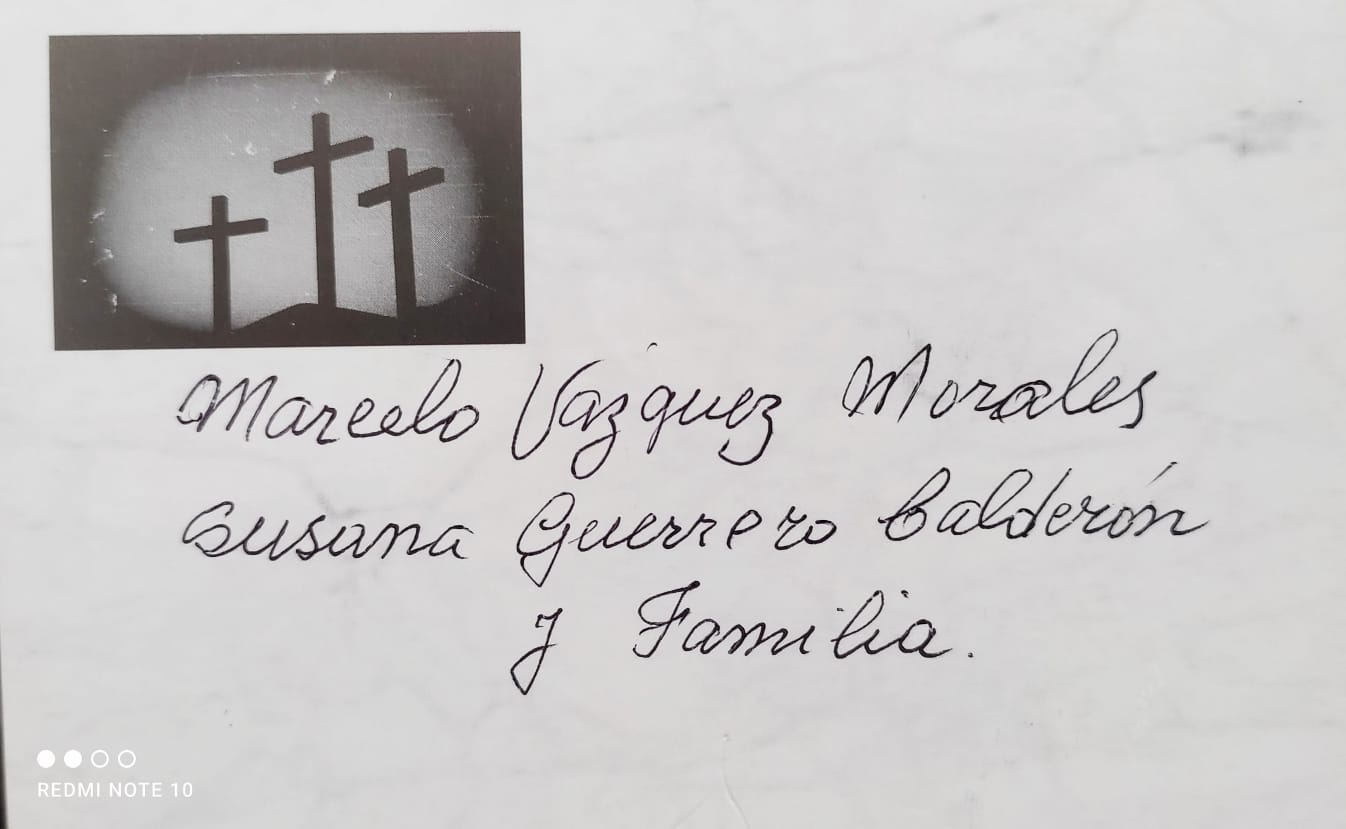 Marcelo Vázquez Morales
Susana Guerrero Calderón
y Familia.
REDMI NOTE 10